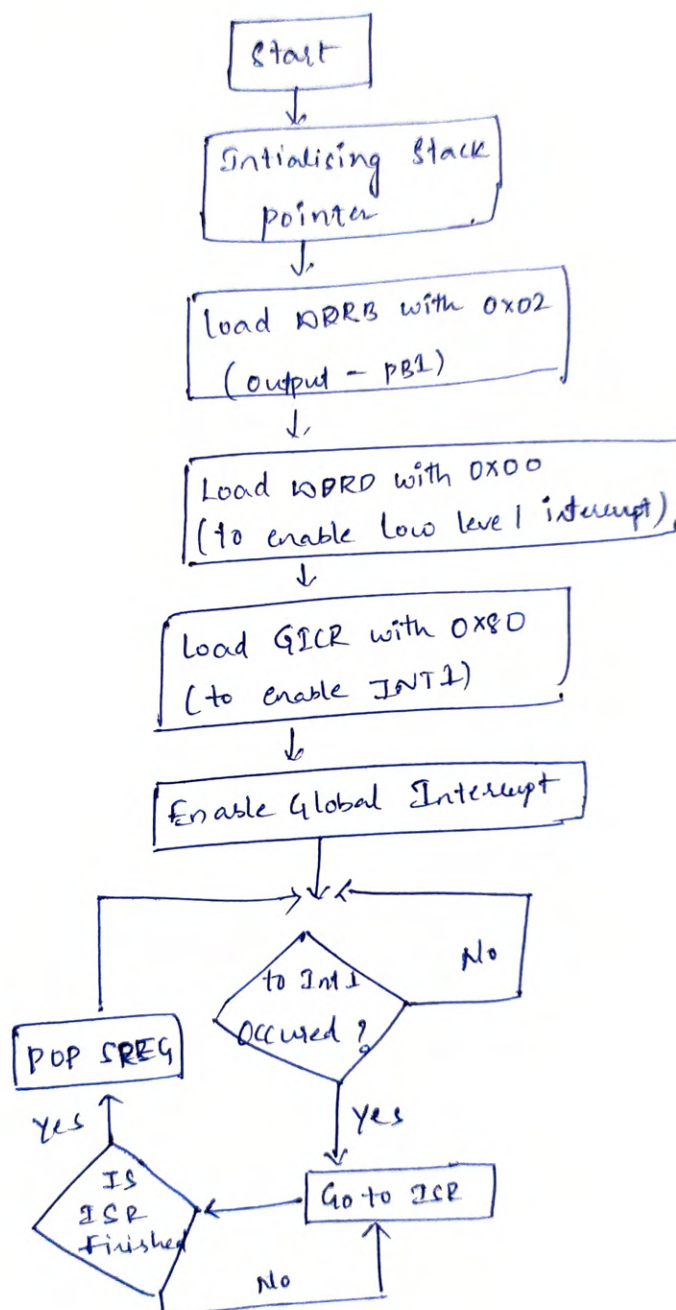 Start
Intialising Stack
pointer
Load DDRB with 0x02
(output - PB1)
Load DDRD with 0x00
(to enable Low level interrupt)
Load GICR with 0x80
(to enable INT1)
Enable Global Interrupt
No
to Int1
occured ?
POP SREG
Yes
Yes
IS
ISR
Finished
Go to ISR
No